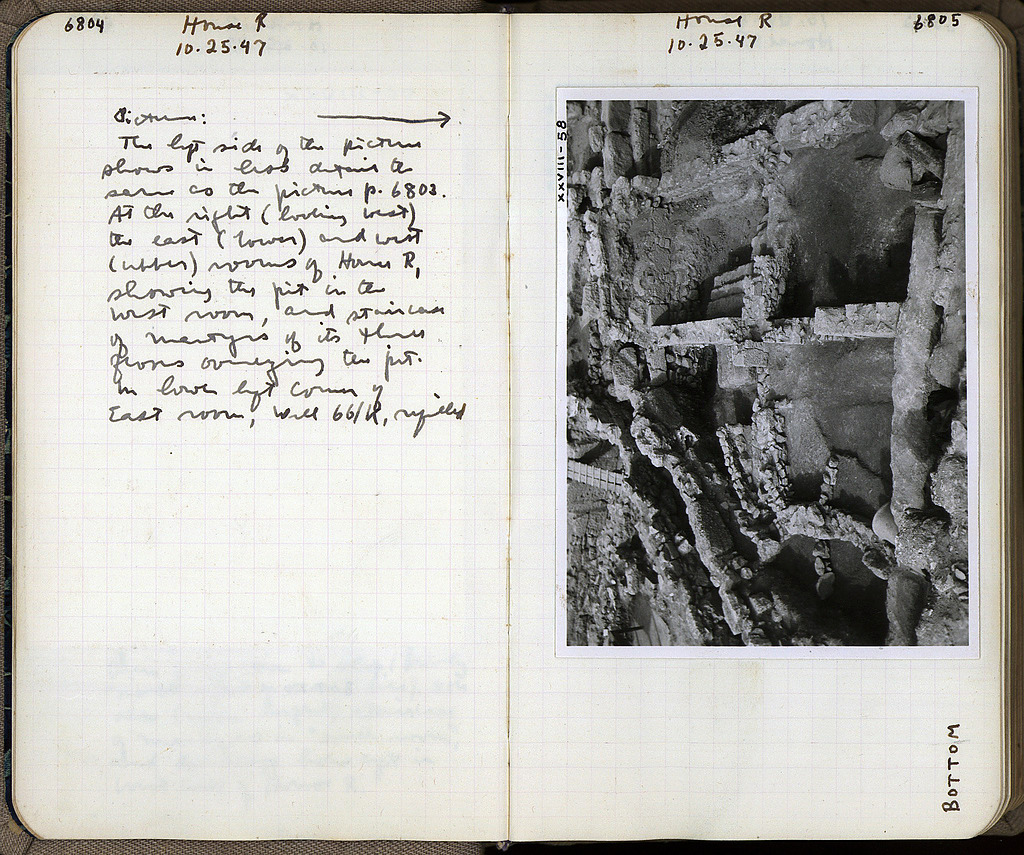 6804
House R
10.25.47
Picture:
The left side of the picture
shows in less detail the
same as the picture p. 6803.
At the right (looking west)
the east (lower) and west
(upper) rooms of House R,
showing the pit in the
west room, and staircase
of martyrs of its three
floors overlying the pit.
In lower left corner of
East room, Well 66/R, refilled
House R
10.25.47
6805
XXVIII-58
BOTTOM